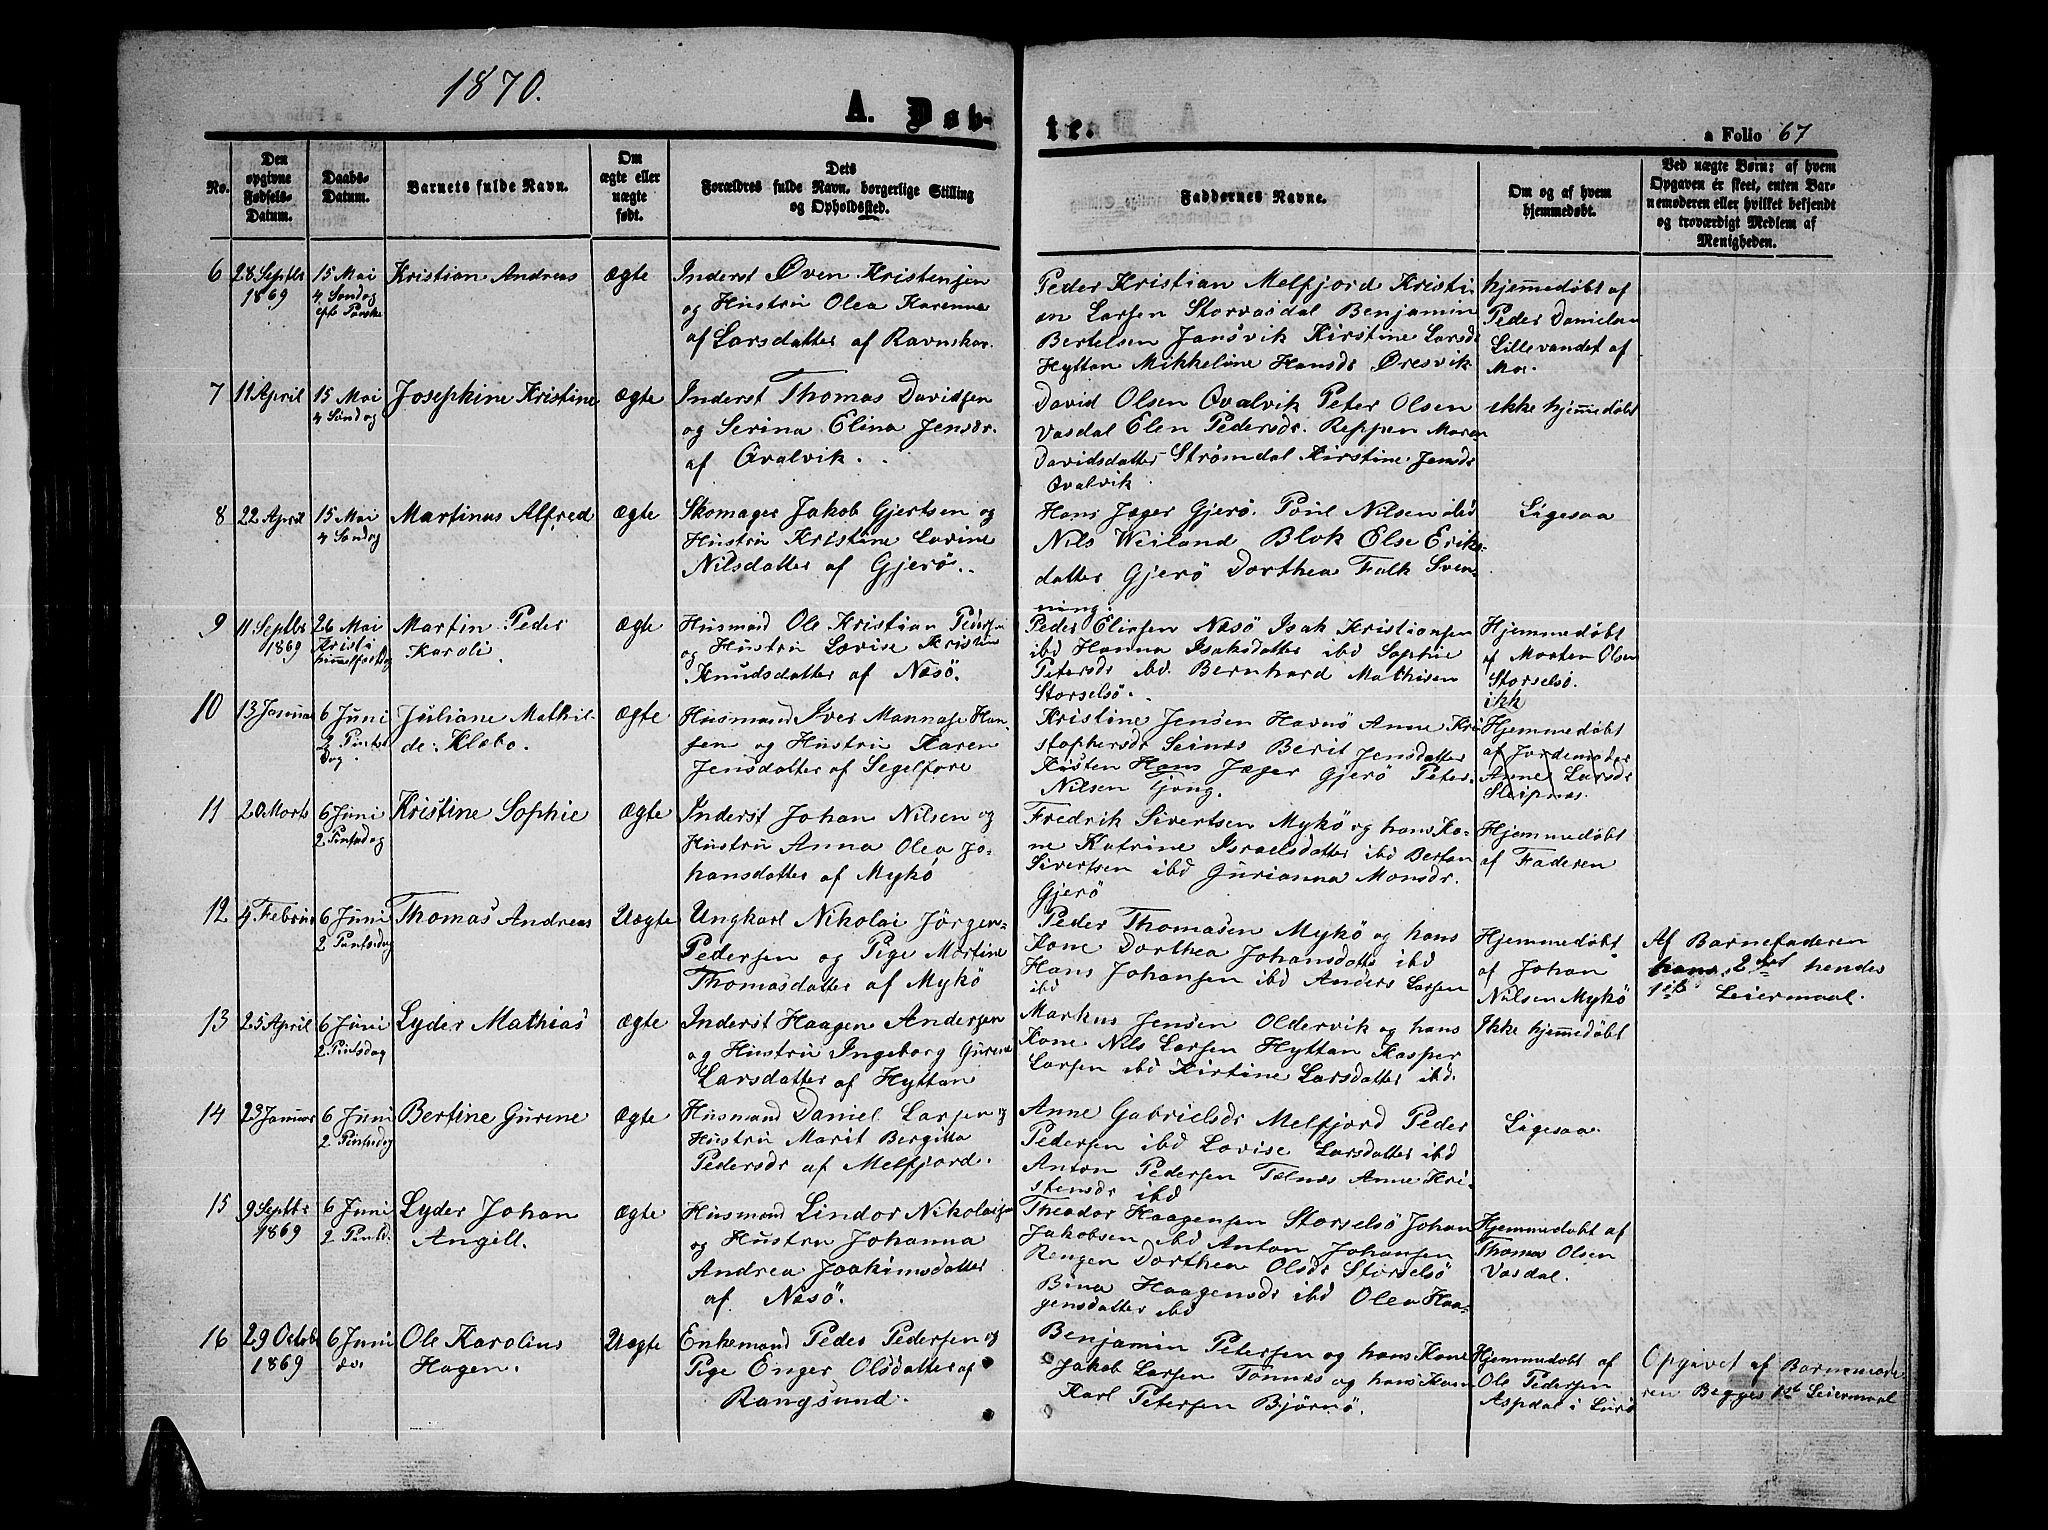 1870.
A. Døb-
te.
a Folio 67
No.
Den
opgivne
Fødsels-
Datum.
Daabs-
Datum.
Barnets fulde Navn.
Om
ægte eller
uægte
født.
Dets
Forældres fulde Navn, borgerlige Stilling
og Opholdssted.
Faddernes Navne.
Om og af hvem
hjemmedøbt.
Ved uægte Børn: af hvem
Opgaven er skeet, enten Bar-
nemoderen eller hvilket bekjendt
og troværdigt Medlem af
Menigheden.
6
28 Septbr
1869
15 Mai
4. Søndag
eft Paaske
Kristian Andreas
Ægte
Inderst Øven Kristensen
og Hustru Olea Karenna
af Larsdatter af Ravnskar.
Peder Kristian Melfjord Kristi-
an Larsen Storvasdal Benjamin
Bertelsen Jansvik Kirstine Larsdr
Hyttan Mikkeline Hansdr Øresvik
hjemmedøbt af
Peder Danielsen
Lillevandet af
Mo.
7
11 April
15 Mai
4 Søndag
Josephine Kristine
Ægte
Inderst Thomas Davidsen
og Serina Elina Jensdr.
af Qvalvik.
David Olsen Qvalvik Peter Olsen
Vasdal Elen Pedersdr. Reppen Maren
Davidsdatter Strømdal Kirstine Jensdr
Qvalvik.
ikke hjemmedøbt
8
22 April
15 Mai
4 Søndag
Martinus Alfred
Ægte
Skomager Jakob Gjertsen og
Hustru Kristine Lovine
Nilsdatter af Gjerø.
Hans Jæger Gjerø. Poul Nilsen ibd
Nils Weiland Blok Else Eriks-
datter Gjerø Dorthea Falk Sven-
ning.
Ligesaa
9
11 Septbr
1869
26 Mai
Kristi
himmelfartsdag
Martin Peder
Karoli
Ægte
Husmand Ole Kristian Pedersen
og Hustru Lovise Kristin
Knudsdatter af Næsø.
Peder Eliasen Næsø Isak Kristiansen
ibd Hanna Isaksdatter ibd Sophie
Petersdr ibd. Bernhard Mathisen
Storselsø.
Hjemmedøbt
af Morten Olsen
Storselsø.
10
13 Januar
6 Juni
2 Pintse
dag.
Juliane Mathil-
de Klæbo.
Ægte
Husmand Iver Mannase Han-
sen og Hustru Karen
Jensdatter af Segelfore
Kristine Jensen Havnø Anne Kri
stophersdr Seines Berit Jensdatter
Kisten Hans Jæger Gjerø Peter
Nilsen Tjong.
ikk
Hjemmedøbt
af Jordemoder
Anne Larsdr
Sleipnes.
11
20 Marts
6 Juni
2 Pintsdag
Kristine Sophie
Ægte
Inderst Johan Nilsen og
Hustru Anna Olea Jo-
hansdatter af Mykø
Fredrik Sivertsen Mykø og hans Ko-
ne Katrine Israelsdatter ibd Bertan
Sivertsen ibd Gurianna Monsdr.
Gjerø
Hjemmedøbt
af Faderen
12
4 Februar
6 Juni
2 Pintsdag
Thomas Andreas
Uægte
Ungkarl Nikolai Jörgen
Pedersen og Pige Martine
Thomasdatter af Mykø
Peder Thomasen Mykø og hans
Kone Dorthea Johansdatter ibd
Hans Johansen ibd Anders Larsen
ibd
Hjemmedøbt
af Johan
Nilsen Mykø
Af Barnefaderen
hans 2det hendes
1ste Leiermaal.
13
25 April
6 Juni
2 Pintsdag
Lyder Mathias
Ægte
Inderst Haagen Andersen
og Hustru Ingeborg Gurine
Larsdatter af Hyttan
Markus Jensen Oldervik og hans
Kone Nils Larsen Hyttan Kasper
Larsen ibd Kirtine Larsdatter ibd.
Ikke hjemmedøbt
14
23 Januar
6 Juni
2 Pintsdag
Bertine Gurine
Ægte
Husmand Daniel Larsen og
Hustru Marit Bergitta
Pedersdr af Melfjord.
Anne Gabrielsdr Melfjord Peder
Pedersen ibd Lovise Larsdatter ibd
Anton Pedersen Tælnes Anne Kri-
stensdr ibd
Ligesaa.
15
9 Septbr
1869
6 Juni
2 Pintsd.
Lyder Johan
Angell.
Ægte
Husmand Lindor Nikolaisen
og Hustru Johanna
Andrea Joakimsdatter
af Næsø.
Theodor Haagensen Storselsø Johan
Jakobsen ibd Anton Johansen
Rengen Dorthea Olsdr Storselsø
Bina Haagensdr ibd Olea Haa-
gensdatter ibd
Hjemmedøbt af
Thomas Olsen
Vasdal.
16
29 Octobr
1869
6 Juni
do.
Ole Karolius
Hagen.
Uægte
Enkemand Peder Pedersen og
Pige Enger Olsdatter af
Rangsund.
Benjamin Petersen og hans Kone
Jakob Larsen Tonnes og hans Kone
Karl Petersen Bjørnø.
Hjemmedøbt af
Ole Pedersen
Aspdal i Lurø
Opgivet af Barnemode
ren Begges 1st Leiermaal